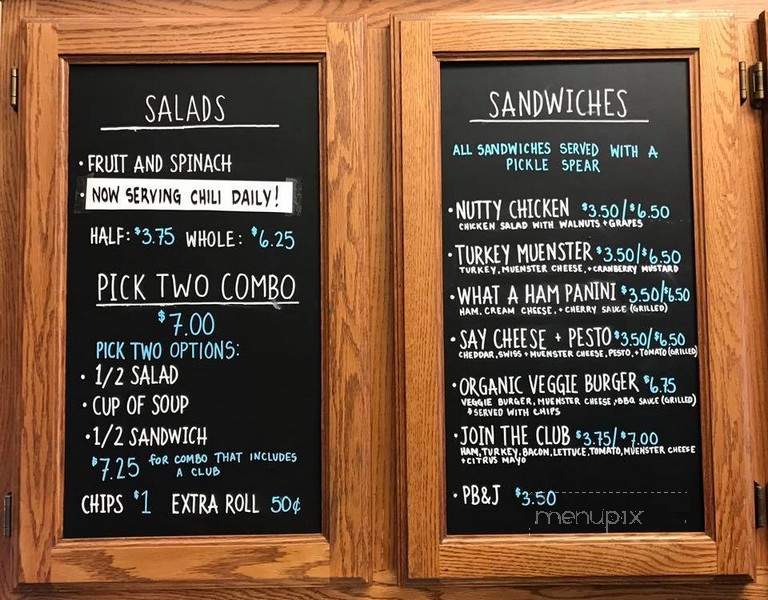 SALADS
• FRUIT AND SPINACH
• NOW SERVING CHILI DAILY!
HALF: $3.75 WHOLE: $6.25
PICK TWO COMBO
$7.00
PICK TWO OPTIONS:
• 1/2 SALAD
• CUP OF SOUP
• 1/2 SANDWICH
$7.25 FOR COMBO THAT INCLUDES
A CLUB
CHIPS $1 EXTRA ROLL 50¢
SANDWICHES
ALL SANDWICHES SERVED WITH A
PICKLE SPEAR
• NUTTY CHICKEN $3.50/$6.50
CHICKEN SALAD WITH WALNUTS + GRAPES
• TURKEY MUENSTER $3.50/$6.50
TURKEY, MUENSTER CHEESE, + CRANBERRY MUSTARD
• WHAT A HAM PANINI $3.50/$6.50
HAM, CREAM CHEESE, + CHERRY SAUCE (GRILLED)
• SAY CHEESE + PESTO $3.50/$6.50
CHEDDAR, SWISS + MUENSTER CHEESE, PESTO, + TOMATO (GRILLED)
• ORGANIC VEGGIE BURGER $6.75
VEGGIE BURGER, MUENSTER CHEESE, + BBQ SAUCE (GRILLED)
* SERVED WITH CHIPS
• JOIN THE CLUB $3.75/$7.00
HAM, TURKEY, BACON, LETTUCE, TOMATO, MUENSTER CHEESE
+ CITRUS MAYO
• PB&J $3.50
menupix